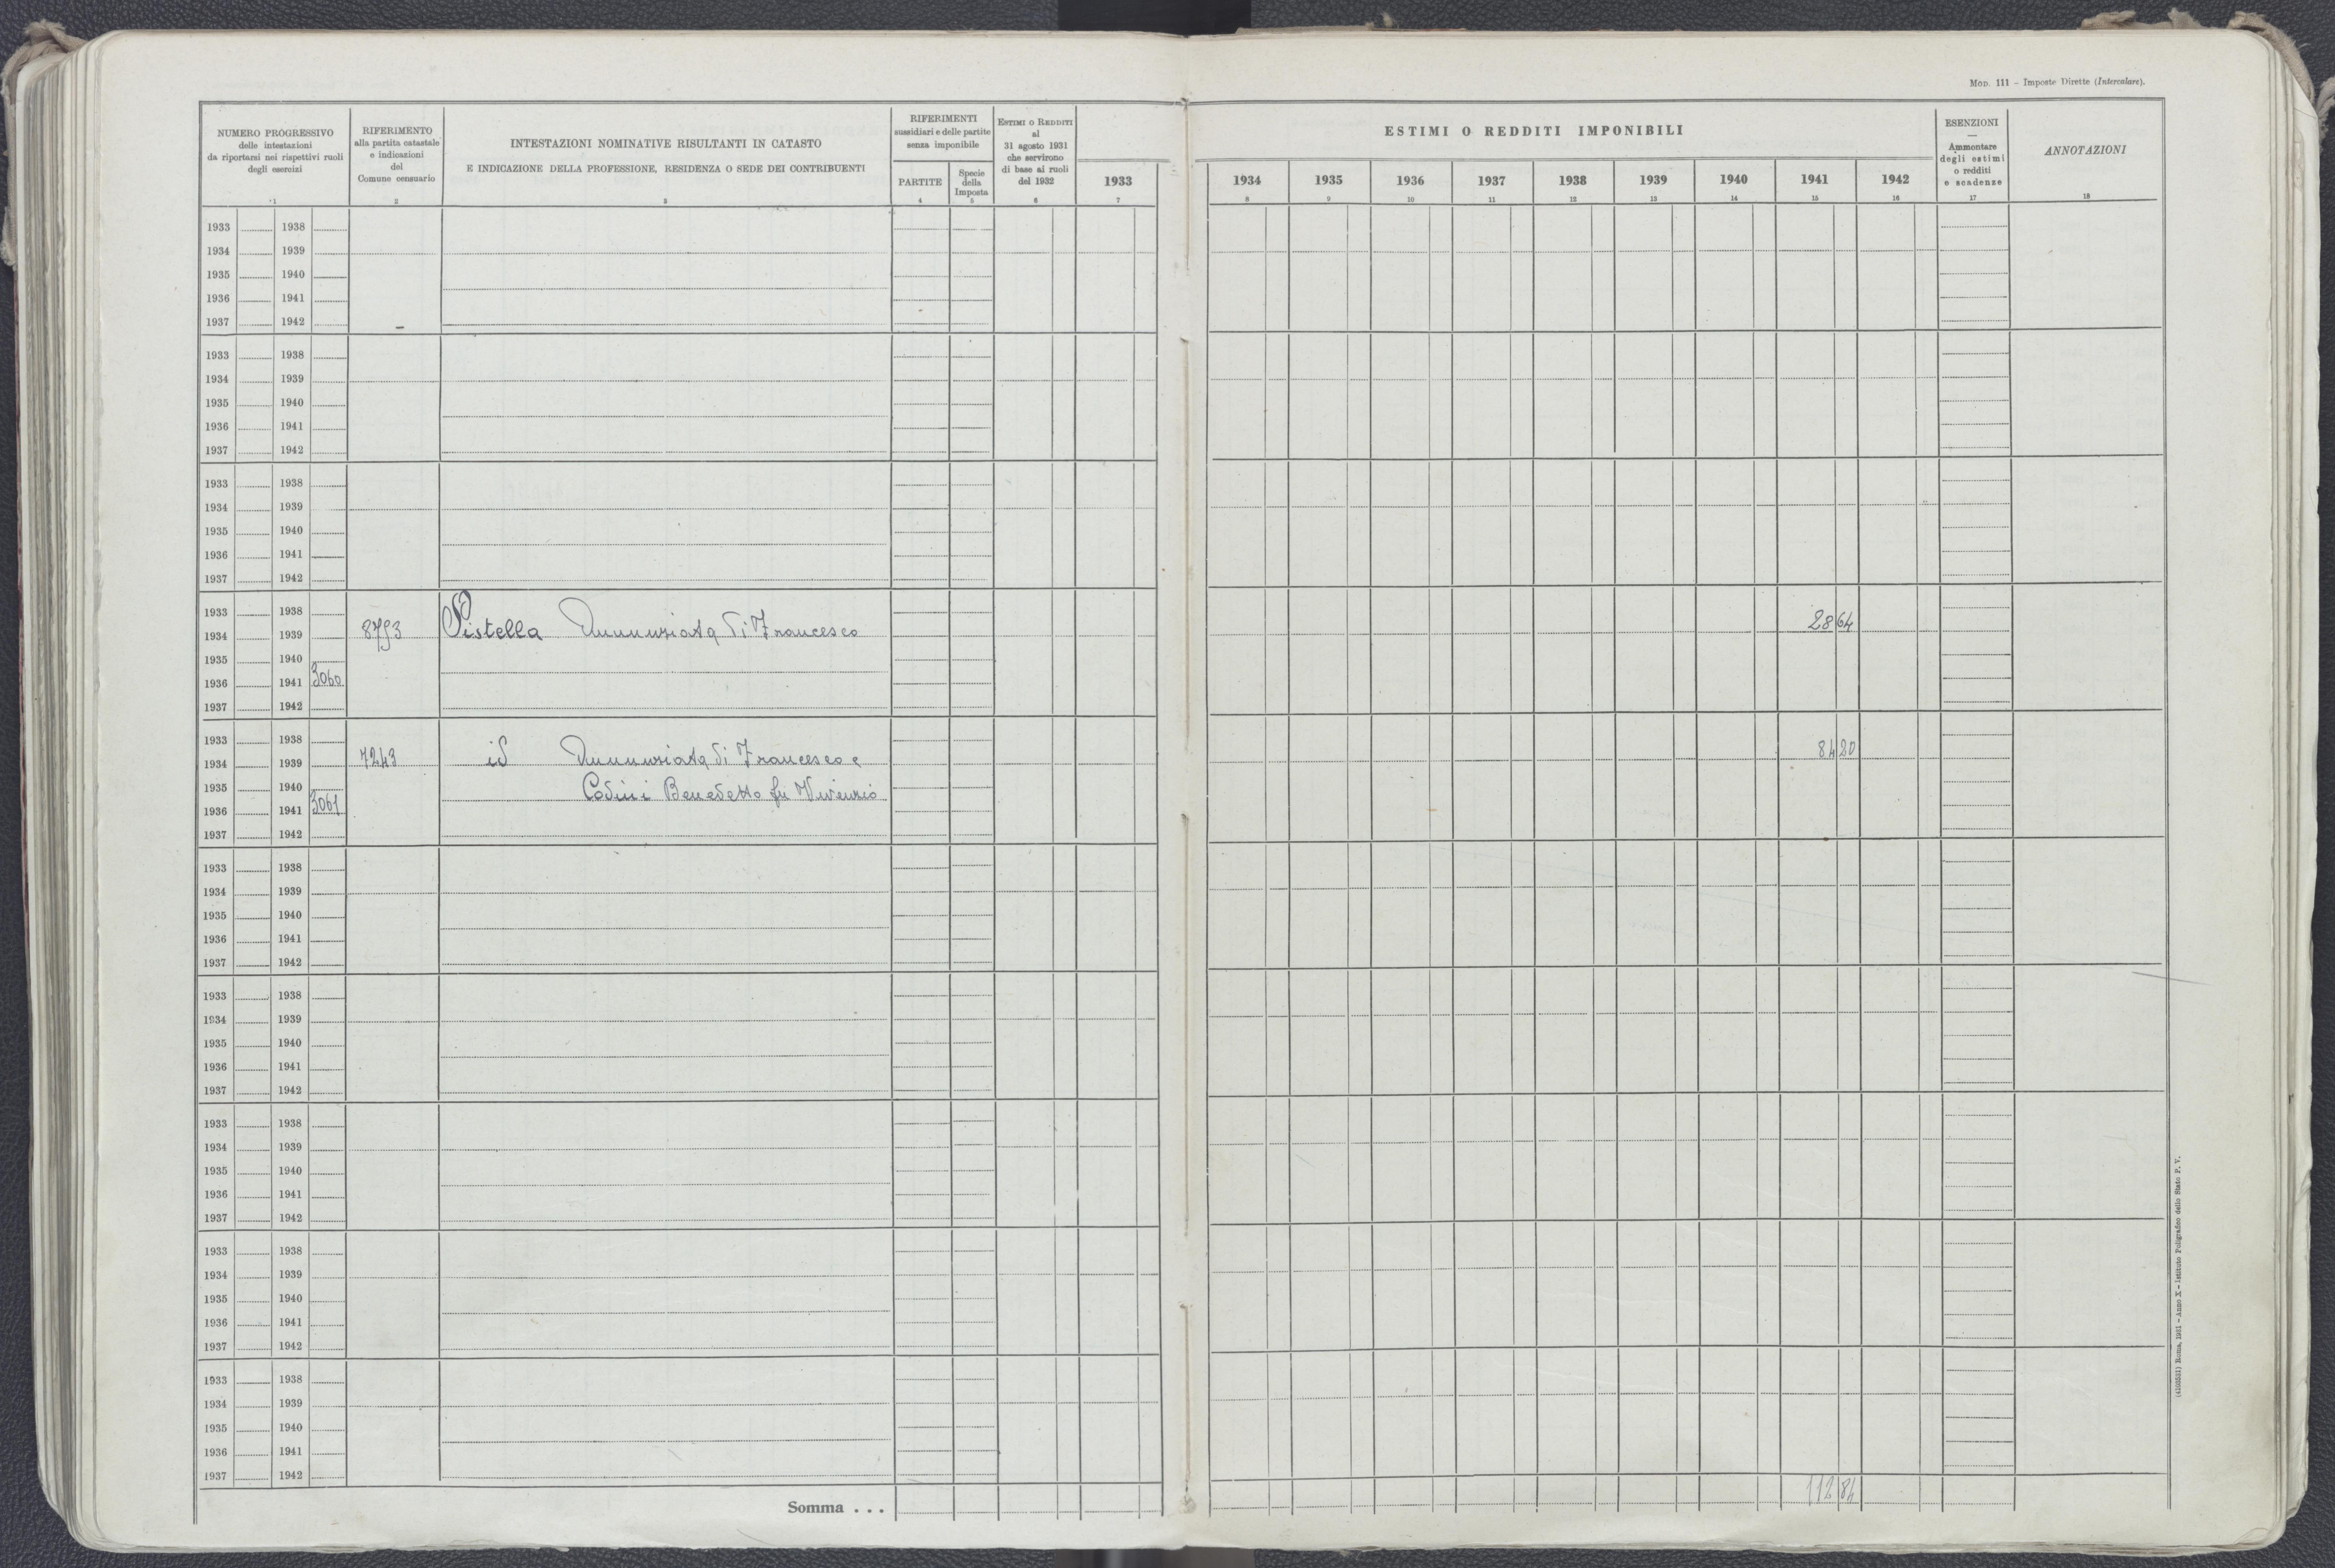 Mod. 111 – Imposte Dirette (Intercalare).
NUMERO PROGRESSIVO
delle intestazioni
da riportarsi nei rispettivi ruoli
degli esercizi
1
RIFERIMENTO
alla partita catastale
e indicazioni
del
Comune censuario
2
INTESTAZIONI NOMINATIVE RISULTANTI IN CATASTO
E INDICAZIONE DELLA PROFESSIONE, RESIDENZA O SEDE DEI CONTRIBUENTI
3
RIFERIMENTI
sussidiari e delle partite
senza imponibile
PARTITE
4
Specie
della
Imposta
5
Estimi o Redditi
al
31 agosto 1931
che servirono
di base ai ruoli
del 1932
6
1933
7
ESTIMI O REDDITI IMPONIBILI
1934 1935 1936 1937 1938 1939 1940 1941 1942
8 9 10 11 12 13 14 15 16
ESENZIONI
—
Ammontare
degli estimi
o redditi
e scadenze
17
ANNOTAZIONI
18
1933 1938
1934 1939
1935 1940
1936 1941
1937 1942
1933 1938
1934 1939
1935 1940
1936 1941
1937 1942
1933 1938
1934 1939
1935 1940
1936 1941
1937 1942
1933 1938
1934 1939 8793 Pistella Annunziata di Francesco 28 64
1935 1940
1936 1941 3060
1937 1942
1933 1938
1934 1939 7243 id Annunziata di Francesco e 84 20
1935 1940 Codini Benedetto fu Vincenzo
1936 1941 3061
1937 1942
1933 1938
1934 1939
1935 1940
1936 1941
1937 1942
1933 1938
1934 1939
1935 1940
1936 1941
1937 1942
1933 1938
1934 1939
1935 1940
1936 1941
1937 1942
1933 1938
1934 1939
1935 1940
1936 1941
1937 1942
1933 1938
1934 1939
1935 1940
1936 1941
1937 1942
Somma . . . 112 84
Roma, 1931 – Anno X – Istituto Poligrafico dello Stato P. V.